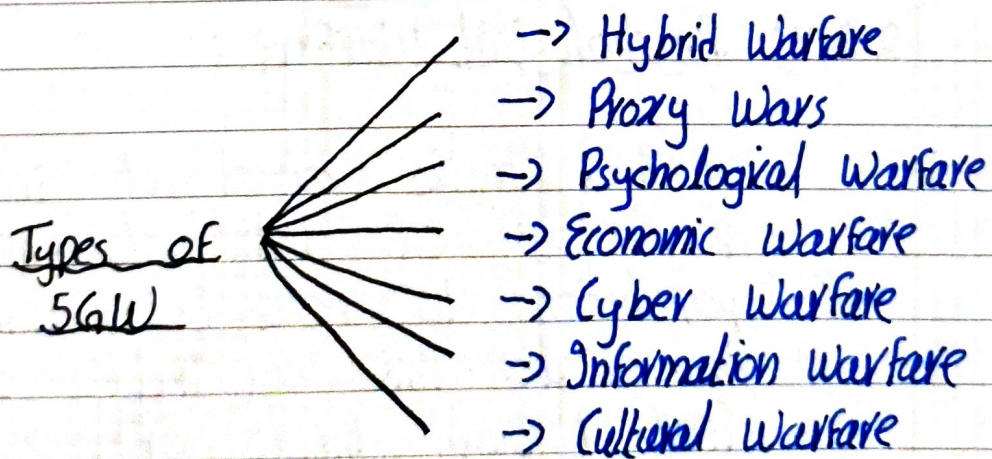 -> Hybrid Warfare
-> Proxy Wars
-> Psychological Warfare
-> Economic Warfare
Types of
5GW
-> Cyber Warfare
-> Information Warfare
-> Cultural Warfare